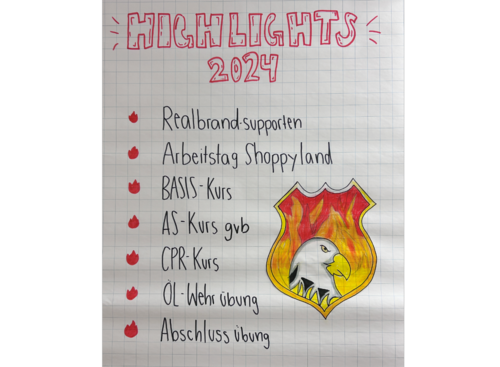 HIGHLIGHTS
2024
Realbrand-supporten
Arbeitstag Shoppyland
BASIS-Kurs
AS-Kurs gvb
CPR-Kurs
ÖL-Wehr übung
Abschluss übung